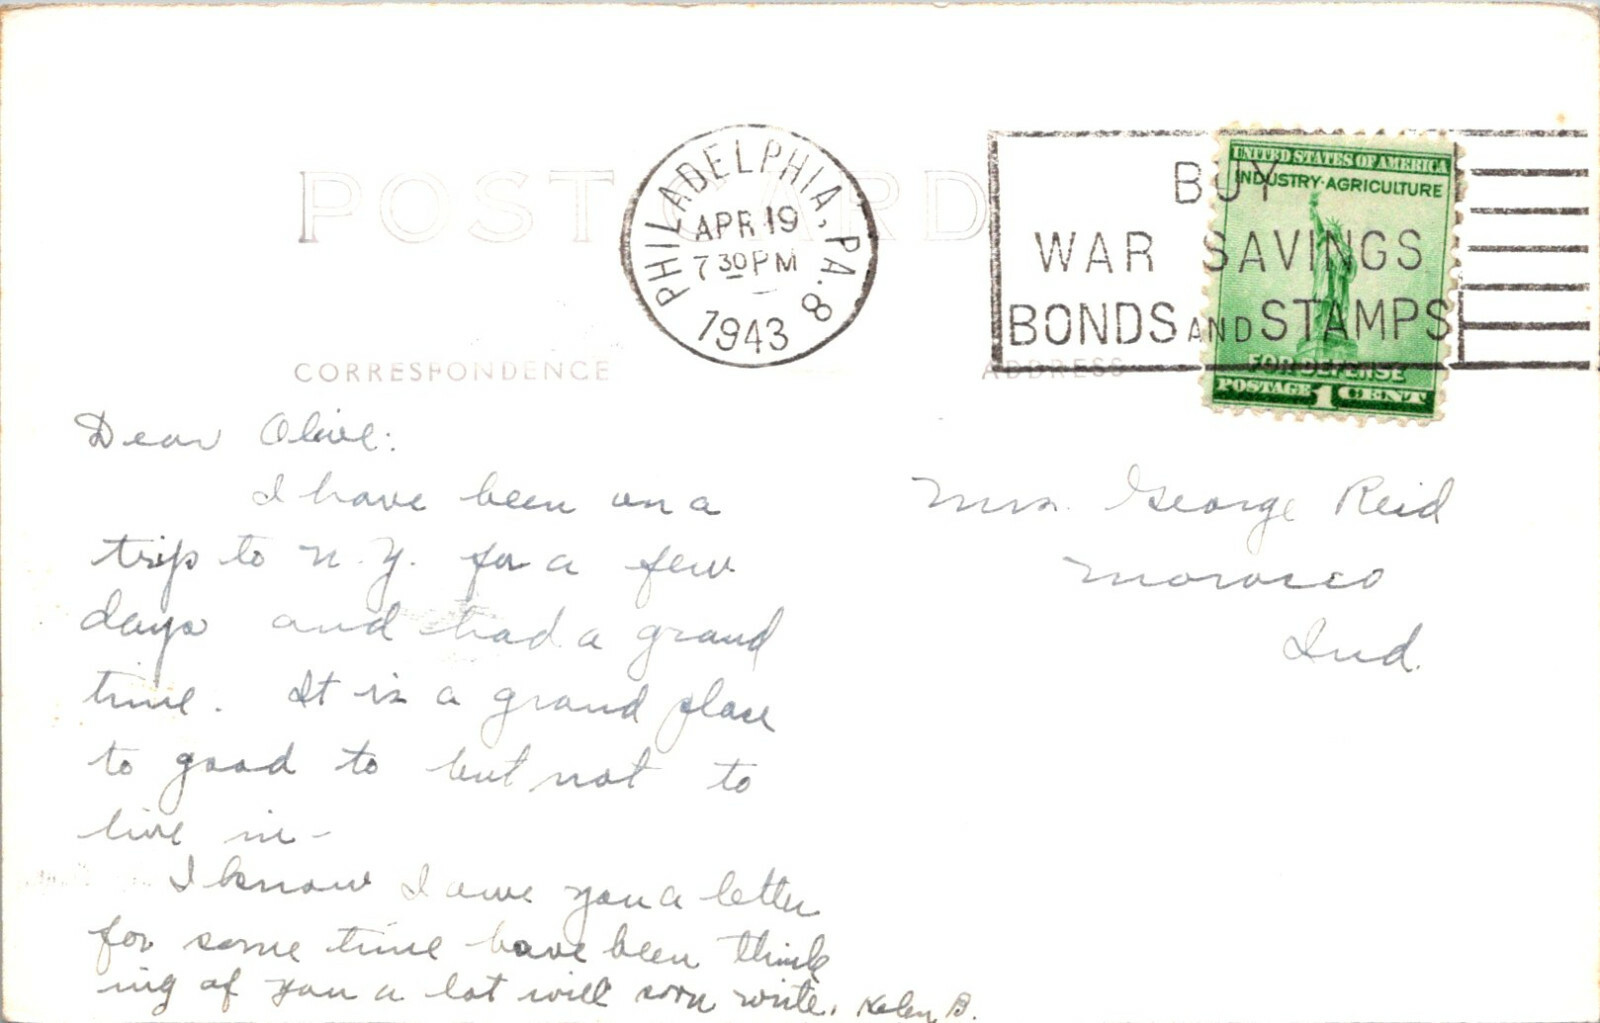 POST CARD
PHILADELPHIA, PA. 8
APR 19
7 30 PM
1943
BUY
WAR SAVINGS
BONDS AND STAMPS
UNITED STATES OF AMERICA
INDUSTRY·AGRICULTURE
FOR DEFENSE
POSTAGE 1 CENT
CORRESPONDENCE
ADDRESS
Dear Olive:
I have been on a
trip to N.Y. for a few
days and had a grand
time. It is a grand place
to good to but not to
live in -
I know I owe you a letter
for some time have been think
ing of you a lot will soon write. Helen B.
Mrs. George Reid
Morocco
Ind.